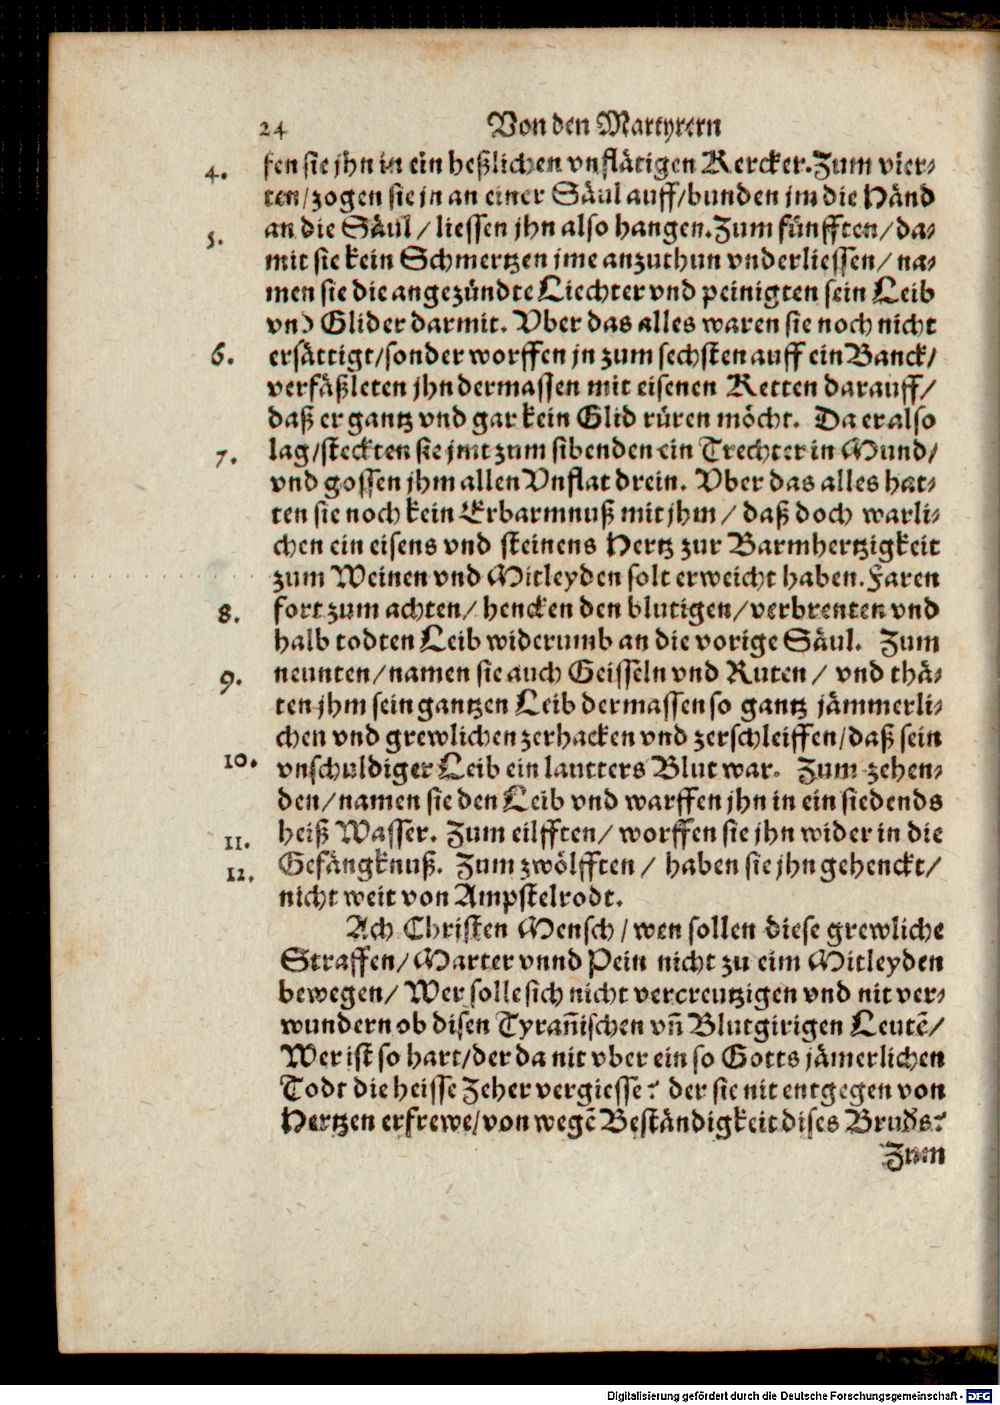 24 Von den Martyrern
4. fen sie jhn in ein heßlichen vnflätigen Kercker. Zum vier-
ten/zogen sie jn an einer Säul auff/bunden jm die Händ
5. an die Säul/ liessen jhn also hangen. Zum fünfften/ da-
mit sie kein Schmertzen jme anzuthun vnderliessen/ na-
men sie die angezündte Liechter vnd peinigten sein Leib
vnd Glider darmit. Vber das alles waren sie noch nicht
6. ersättigt/sonder worffen jn zum sechsten auff ein Banck/
verfäßleten jhn dermassen mit eisenen Ketten darauff/
daß er gantz vnd gar kein Glid rüren möcht. Da er also
7. lag/steckten sie jmt zum sibenden ein Trechter in Mund/
vnd gossen jhm allen Vnflat drein. Vber das alles hat-
ten sie noch kein Erbarmnuß mit jhm/ daß doch warli-
chen ein eisens vnd steinens Hertz zur Barmhertzigkeit
zum Weinen vnd Mitleyden solt erweicht haben. Faren
8. fort zum achten/ hencken den blutigen/verbrenten vnd
halb todten Leib widerumb an die vorige Säul. Zum
9. neunten/namen sie auch Geisseln vnd Ruten/ vnd thä-
ten jhm sein gantzen Leib dermassen so gantz jämmerli-
chen vnd grewlichen zerhacken vnd zerschleiffen/daß sein
10. vnschuldiger Leib ein lautters Blut war. Zum zehen-
den/namen sie den Leib vnd warffen jhn in ein siedends
11. heiß Wasser. Zum eilfften/ worffen sie jhn wider in die
12. Gefängknuß. Zum zwölfften/ haben sie jhn gehenckt/
nicht weit von Ampstelrodt.
Ach Christen Mensch/wen sollen diese grewliche
Straffen/Marter vnnd Pein nicht zu eim Mitleyden
bewegen/ Wer solle sich nicht vercreutzigen vnd nit ver-
wundern ob disen Tyrañischen vñ Blutgirigen Leutẽ/
Wer ist so hart/der da nit vber ein so Gotts jämerlichen
Todt die heisse Zeher vergiesse? der sie nit entgegen von
Hertzen erfrewe/von wegẽ Beständigkeit dises Bruds?
Zum
Digitalisierung gefördert durch die Deutsche Forschungsgemeinschaft - DFG